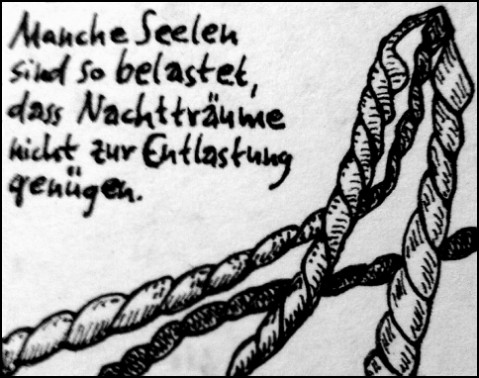 Manche Seelen
sind so belastet,
dass Nachtträume
nicht zur Entlastung
genügen.